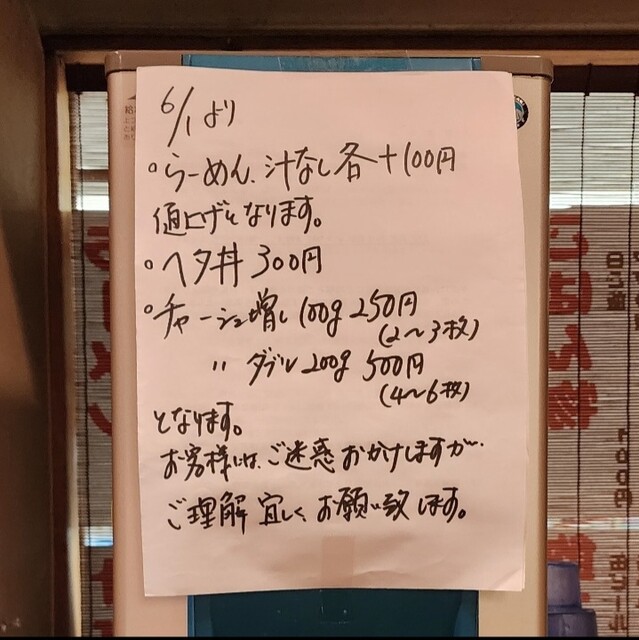 6/1より
・らーめん、汁なし各+100円
値上げとなります。
・ヘタ丼 300円
・チャーシュー増し 100g 250円
(2〜3枚)
〃 ダブル 200g 500円
(4〜6枚)
となります。
お客様には、ご迷惑おかけしますが、
ご理解宜しく、お願い致します。